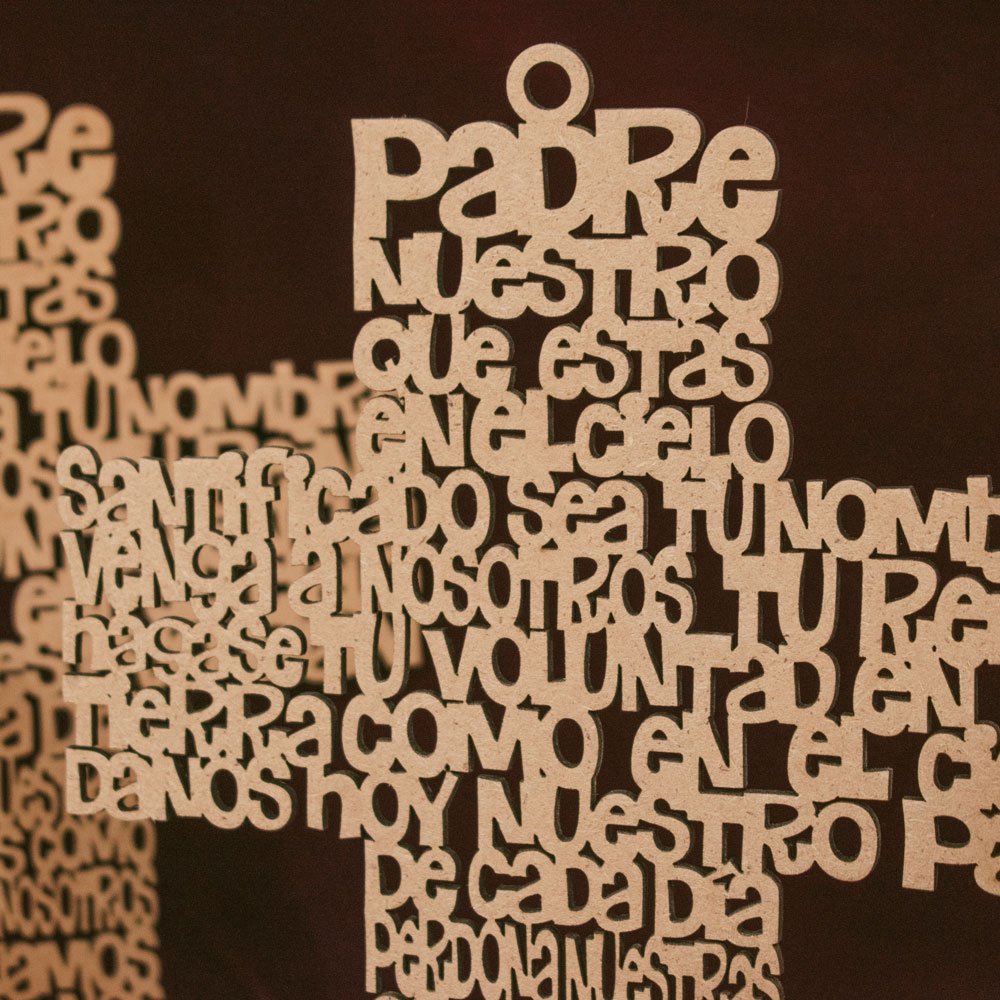 PaDRe
NUeSTRO
QUe eSTaS
eN eL cieLO
SaNTificaDO Sea TU NOMb
veNga a NOSOTROS TU Re
hagase TU vOLUNTaD eN
TieRRa cOMO eN eL ci
DaNOS hOY NUeSTRO Pa
De caDa Día
PeRDONa NUeSTRas
Re
RO
Tas
ieLO
a TU NOMbR
S cOMO
NOSOTROS
aMOS